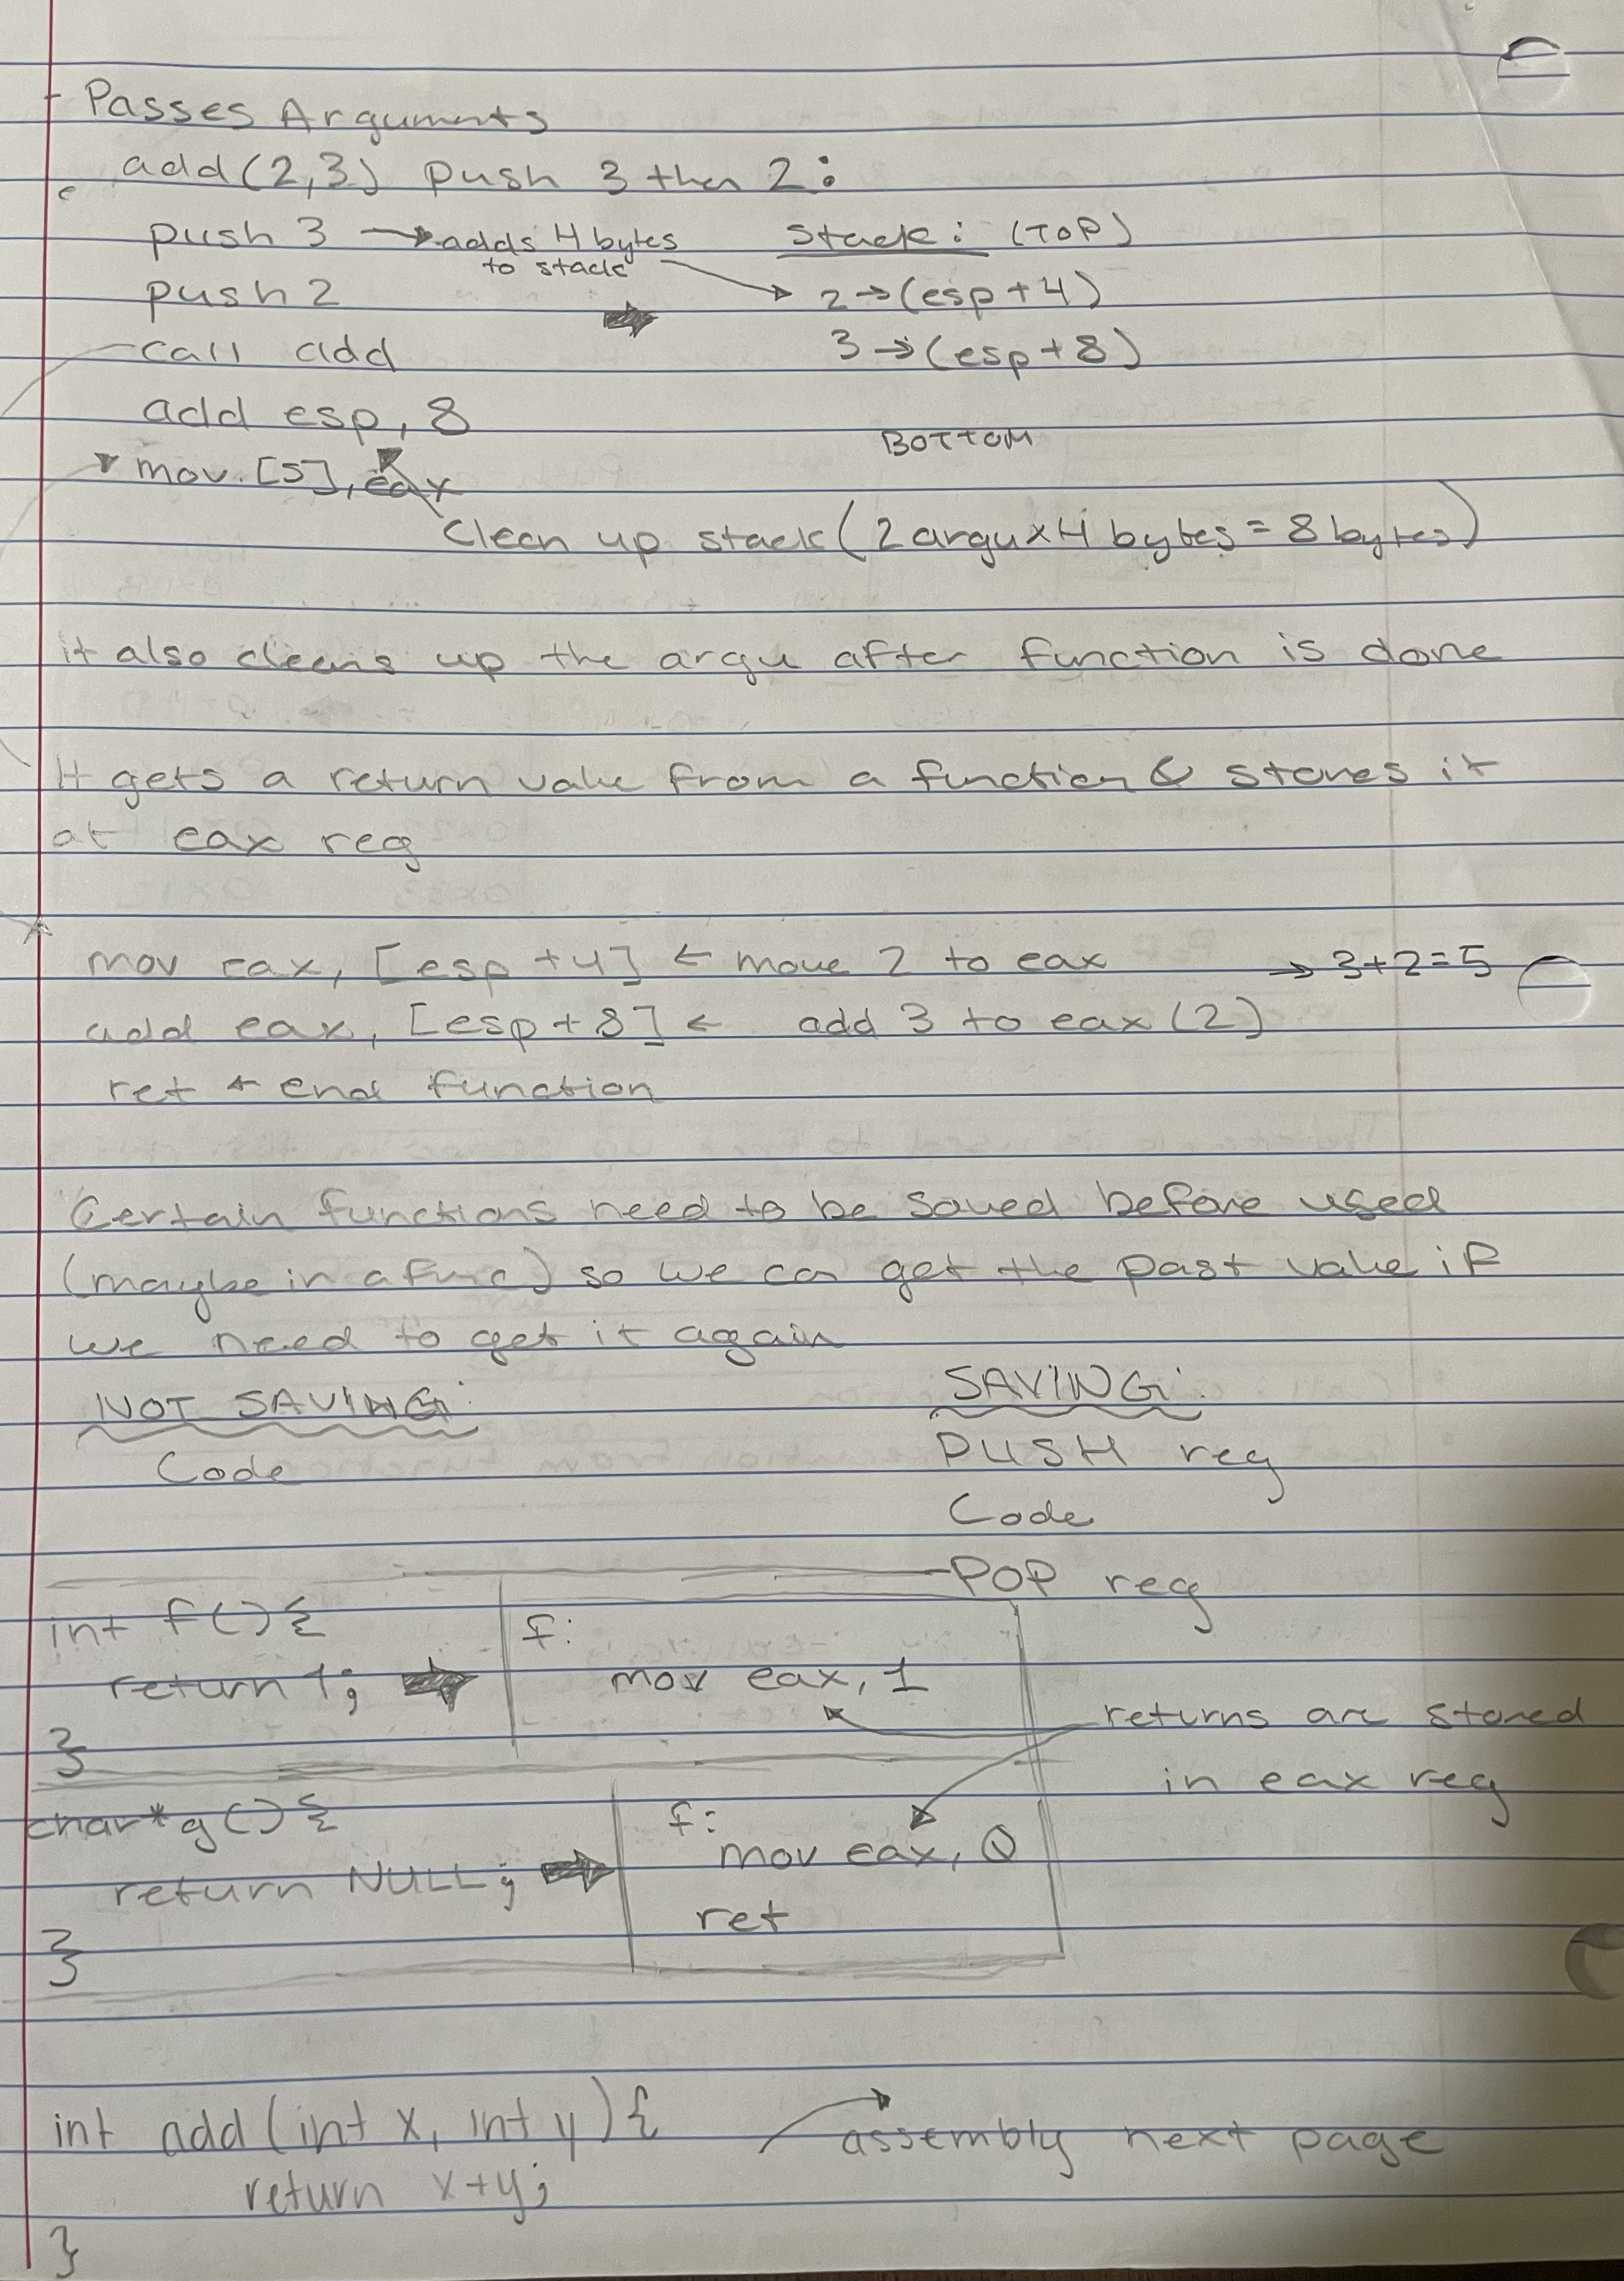 - Passes Arguments
add(2,3) push 3 then 2:
push 3 → adds 4 bytes to stack
Stack: (TOP)
push 2
2 → (esp + 4)
call add
3 → (esp + 8)
add esp, 8
BOTTOM
mov [5], eax
Clean up stack (2 argu x 4 bytes = 8 bytes)
it also cleans up the argu after function is done
It gets a return value from a function & stores it
at eax reg
mov eax, [esp + 4] ← move 2 to eax → 3+2=5
add eax, [esp + 8] ← add 3 to eax (2)
ret ← end function
Certain functions need to be saved before used
(maybe in a func) so we can get the past value if
we need to get it again
NOT SAVING:
Code
SAVING:
PUSH reg
Code
POP reg
int f(){
return 1;
}
f:
mov eax, 1
returns are stored
in eax reg
char* g(){
return NULL;
}
f:
mov eax, 0
ret
int add(int x, int y){
return x+y;
}
assembly next page